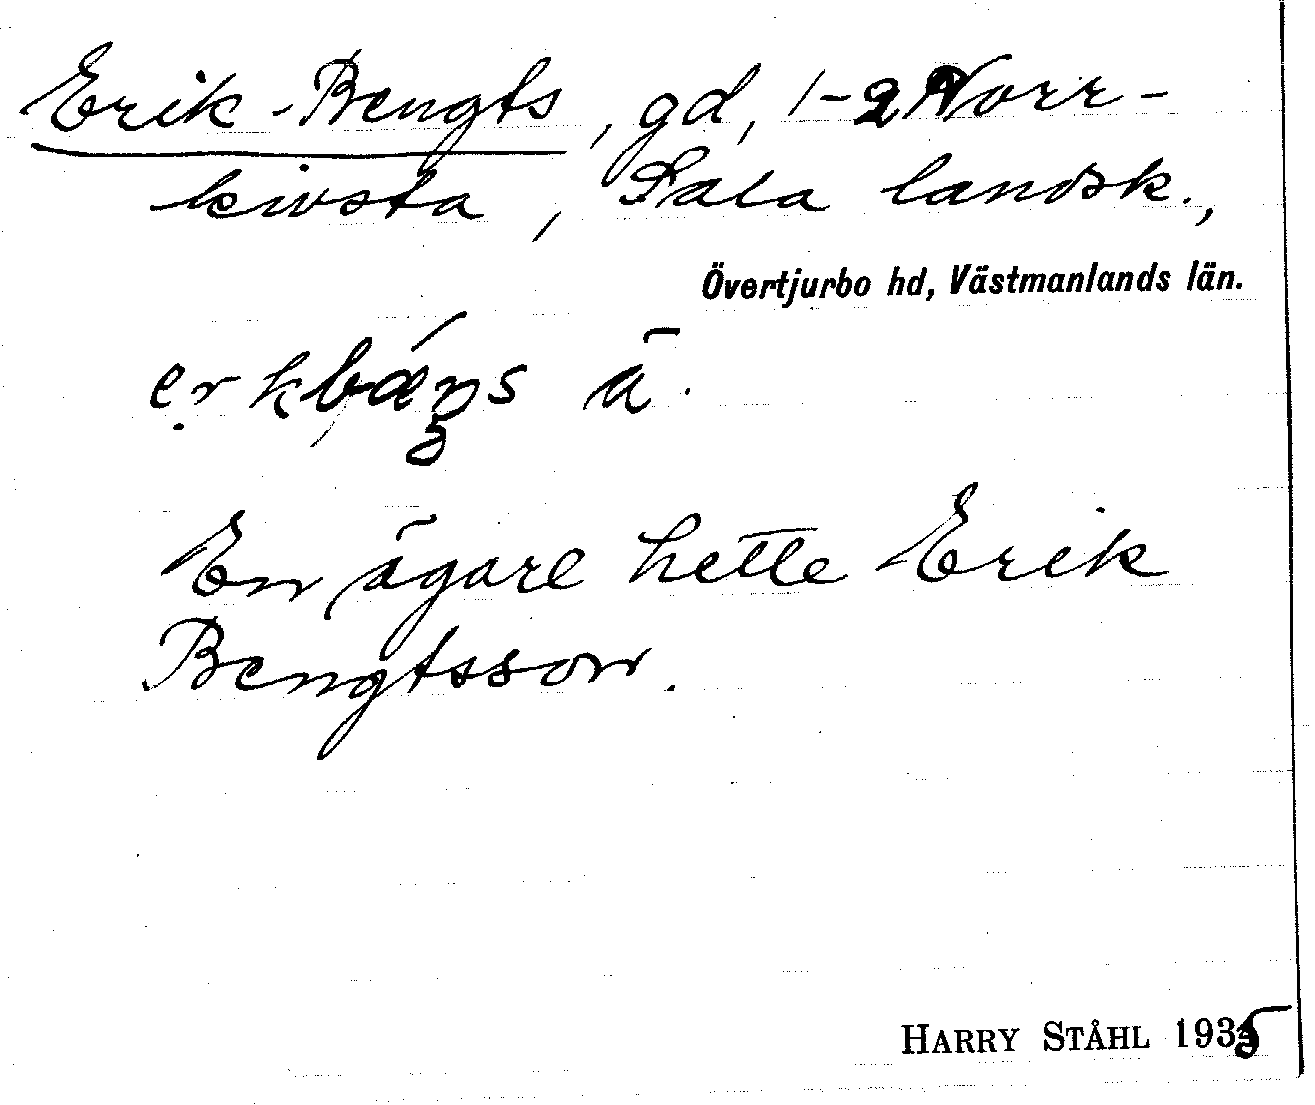 Erik-Bengts, gd, 1-2 Norr-
kivsta, Sala landsk.,
Övertjurbo hd, Västmanlands län.
En ägare hette Erik
Bengtsson.
HARRY STÅHL 1935